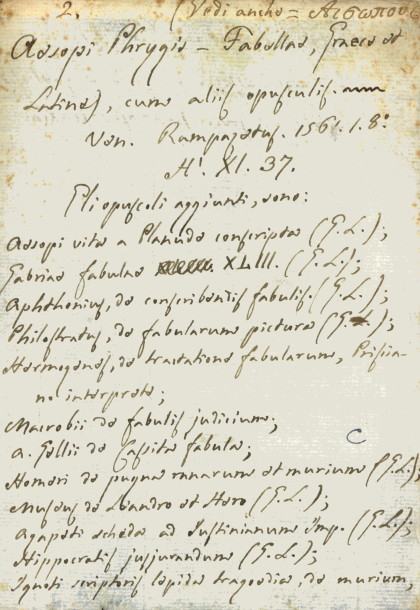 2. (Vedi anche = Αισωπου
Aesopi Phrygis = Fabellae, Graece et
Latine, cum aliis opusculis.
Ven. Rampazetus. 1561. 1. 8°
H'. XI. 37.
Gli opuscoli aggiunti, sono:
Aesopi vita a Planude conscripta (G.L.);
Gabriae fabulae XLIII. (G.L.);
Aphthonius, de conscribendis fabulis. (G.L.);
Philostratus, de fabularum pictura (G.L.);
Hermogenes, de tractatione fabularum, Priscia-
no interprete;
Macrobii de fabulis judicium;
A. Gellii de Cassita fabula;
C
Homeri de pugna ranarum et murium (G.L.);
Musaeus de Leandro et Hero (G.L.);
Agapeti scheda ad Justinianum Imp. (G.L.);
Hippocratis jusjurandum (G.L.);
Ignoti scriptoris lepida tragoedia, de murium,